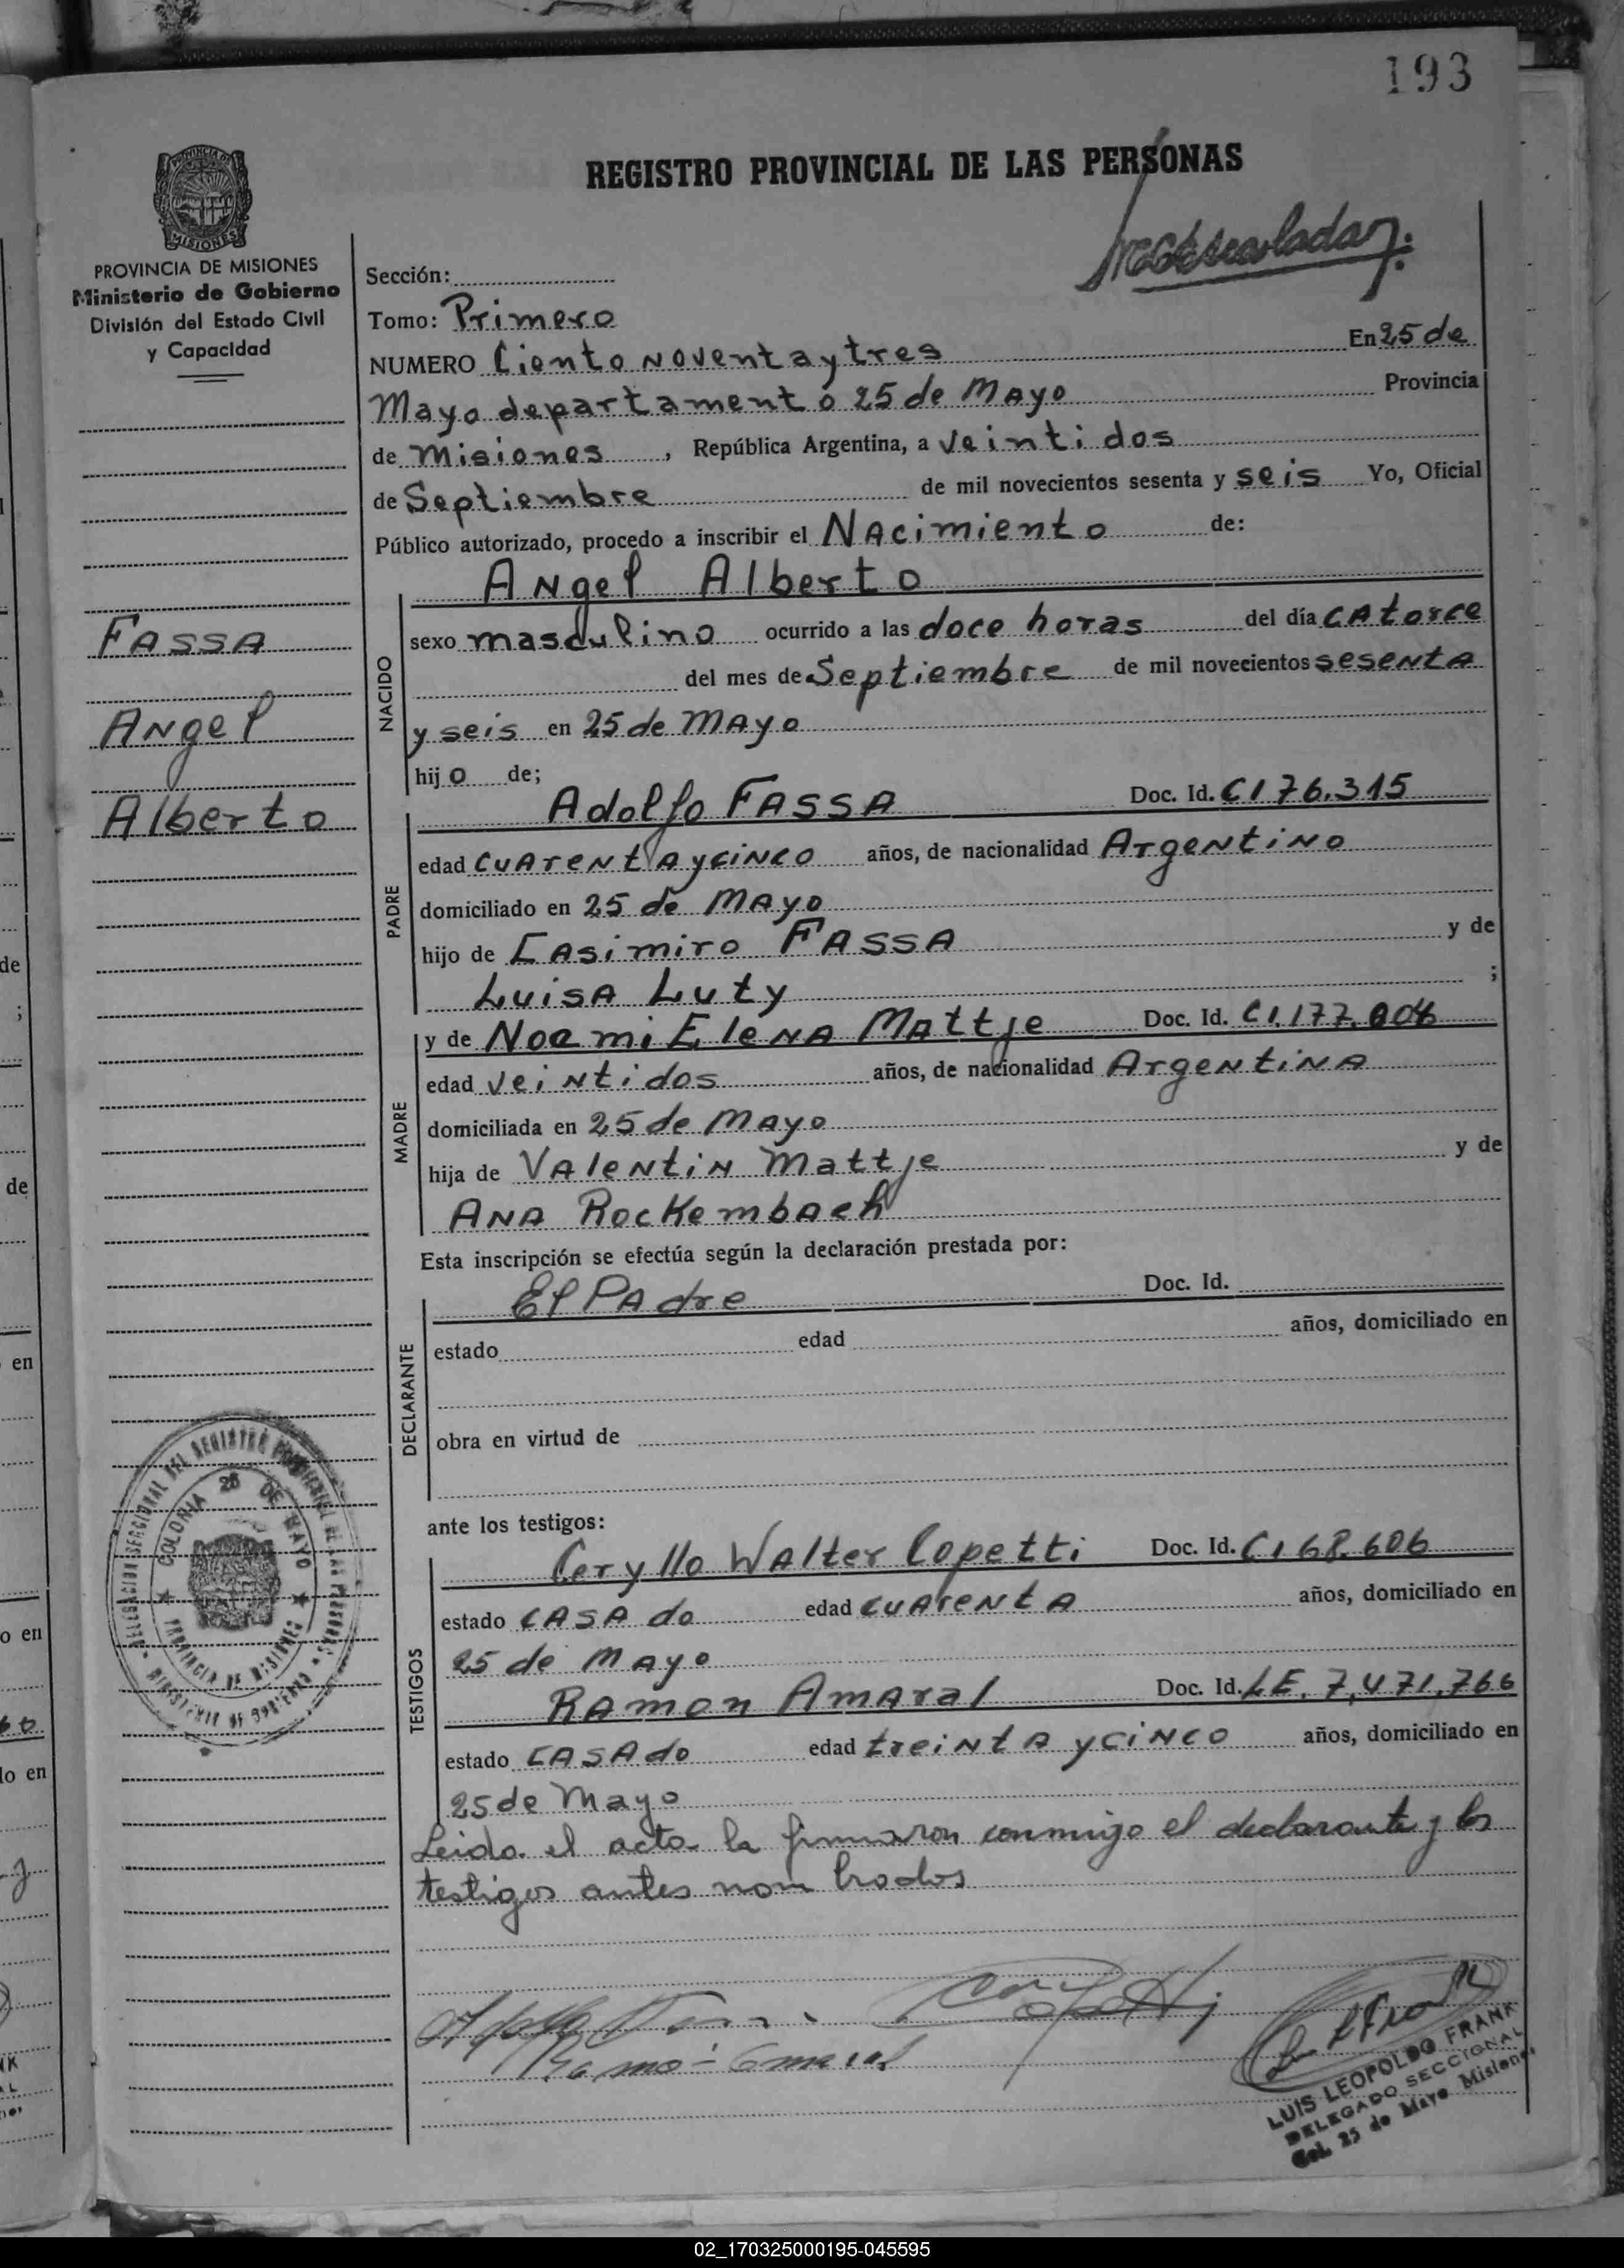 193
REGISTRO PROVINCIAL DE LAS PERSONAS
PROVINCIA DE MISIONES
Ministerio de Gobierno
División del Estado Civil
y Capacidad
FASSA
Angel
Alberto
Sección:
Tomo: Primero
NUMERO Ciento noventa y tres En 25 de
Mayo departamento 25 de Mayo Provincia
de Misiones, República Argentina, a veintidos
de Septiembre de mil novecientos sesenta y seis Yo, Oficial
Público autorizado, procedo a inscribir el Nacimiento de:
NACIDO
Angel Alberto
sexo masculino ocurrido a las doce horas del día catorce
del mes de Septiembre de mil novecientos sesenta
y seis en 25 de Mayo
hijo de;
PADRE
Adolfo FASSA Doc. Id. CI 76.315
edad cuarenta y cinco años, de nacionalidad Argentino
domiciliado en 25 de Mayo
hijo de Casimiro FASSA y de
Luisa Luty ;
MADRE
y de Noemi Elena Mattje Doc. Id. CI. 177.
edad veintidos años, de nacionalidad Argentina
domiciliada en 25 de Mayo
hija de Valentin Mattje y de
Ana Rockembach
Esta inscripción se efectúa según la declaración prestada por:
DECLARANTE
El Padre Doc. Id.
estado edad años, domiciliado en
obra en virtud de
ante los testigos:
TESTIGOS
Ceryllo Walter Copetti Doc. Id. CI 68.606
estado casado edad cuarenta años, domiciliado en
25 de Mayo
Ramon Amaral Doc. Id. LE. 7,471,766
estado casado edad treinta y cinco años, domiciliado en
25 de Mayo
Leida el acta la firmaron conmigo el declarante y los
testigos antes nombrados
COLONIA 25 DE MAYO
PROVINCIA DE MISIONES
LUIS LEOPOLDO FRANK
DELEGADO SECCIONAL
Col. 25 de Mayo Misiones
02_170325000195-045595